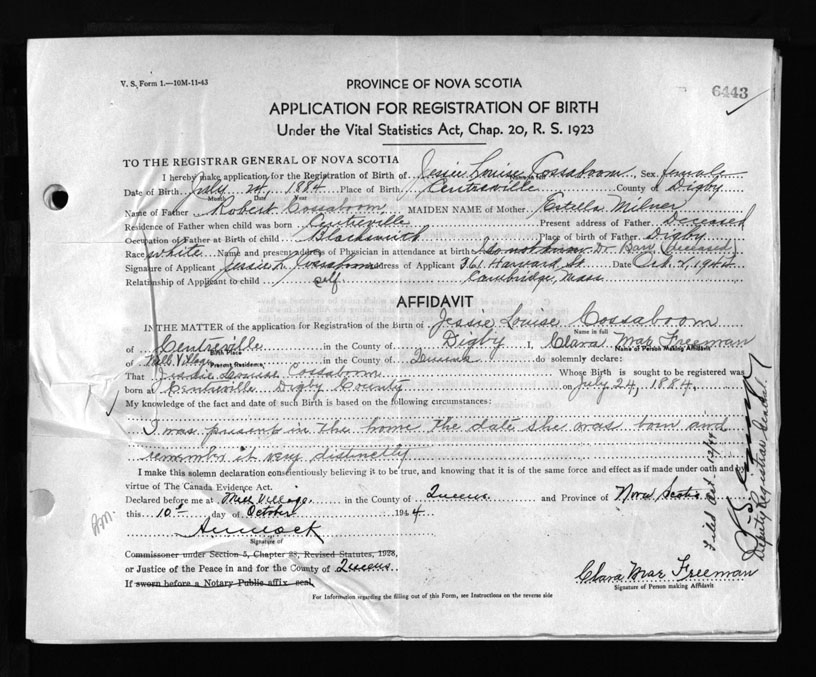 V. S. Form 1.—10M-11-43
6443
PROVINCE OF NOVA SCOTIA
APPLICATION FOR REGISTRATION OF BIRTH
Under the Vital Statistics Act, Chap. 20, R. S. 1923
TO THE REGISTRAR GENERAL OF NOVA SCOTIA
I hereby make application for the Registration of Birth of Jessie Louise Cossaboom Sex female
Date of Birth July 24, 1884 Place of Birth Centreville County of Digby
Month Date Year
Name of Father Robert Cossaboom MAIDEN NAME of Mother Estella Milner
Residence of Father when child was born Centreville Present address of Father Deceased
Occupation of Father at Birth of child Blacksmith Place of birth of Father Digby
Race white Name and present address of Physician in attendance at birth do not know Dr (deceased)
Signature of Applicant Jessie L Cossaboom address of Applicant 361 Harvard St Date Oct 2, 1944
Relationship of Applicant to child self Cambridge, Mass
AFFIDAVIT
IN THE MATTER of the application for Registration of the Birth of Jessie Louise Cossaboom
Name in full
of Centreville in the County of Digby I, Clara Mae Freeman
Birth Place Name of Person Making Affidavit
of Mill Village in the County of Queens do solemnly declare:
Present Residence
That Jessie Louise Cossaboom Whose Birth is sought to be registered was
born at Centreville Digby County on July 24, 1884.
My knowledge of the fact and date of such Birth is based on the following circumstances:
I was present in the home the date she was born and
remember it very distinctly
I make this solemn declaration conscientiously believing it to be true, and knowing that it is of the same force and effect as if made under oath and by
virtue of The Canada Evidence Act.
Declared before me at Mill Village in the County of Queens and Province of Nova Scotia
this 10th day of October 1944
Signature of
Commissoner under Section 5, Chapter 28, Revised Statutes, 1923,
or Justice of the Peace in and for the County of Queens
If sworn before a Notary Public affix seal.
Clara Mae Freeman
Signature of Person making Affidavit
For Information regarding the filling out of this Form, see Instructions on the reverse side
Filed Oct
Deputy Registrar General.